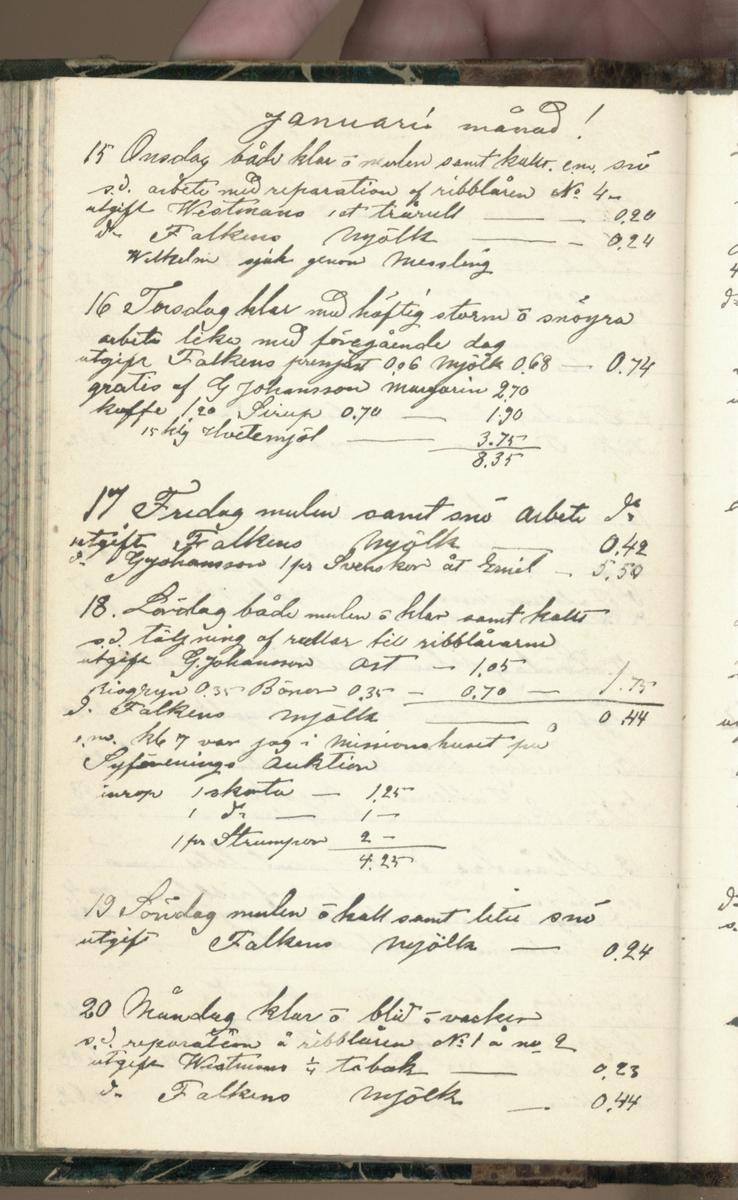 januari månad!
15 Onsdag både klar o mulen samt kallt. e.m. snö
s.d. arbete med reparation af ribblåren No 4
utgift Westmans 1 st trärull — — 0,20
do Falkens Mjölk — — 0,24
Wilhelm sjuk genom Messling
16 Torsdag klar med häftig storm o snöyra
arbete lika med föregående dag
utgift Falkens 0,06 Mjölk 0,68 — 0,74
gratis af G Johansson Margarin 2,70
kaffe 1,20 Sirup 0.70 — 1.90
15 klg Hvetemjöl — 3.75
8.35
17 Fredag mulen samt snö arbete do
utgift Falkens Mjölk — 0,42
do G Johansson 1 pr Svenskor åt Emil — 5.50
18. Lördag både mulen o klar samt kallt
s.d. täljning af till ribblårarne
utgift G. Johansson Ost — 1,05
Risgryn 0.35 Bönor 0.35 — 0.70 — 1.75
d. Falkens Mjölk — 0.44
e.m. kl 7 var jag i Missionshuset på
Syförenings Auktion
inrop 1 skorta — 1,25
1 do — 1 —
1 pr Strumpor 2 —
4.25
19 Söndag mulen o kall samt lite snö
utgift Falkens Mjölk — 0.24
20 Måndag klar o blid o vacker
s.d. reparation å ribblåren No 1 å no 2
utgift Westmans ¼ tobak — 0.23
do Falkens Mjölk — 0.44